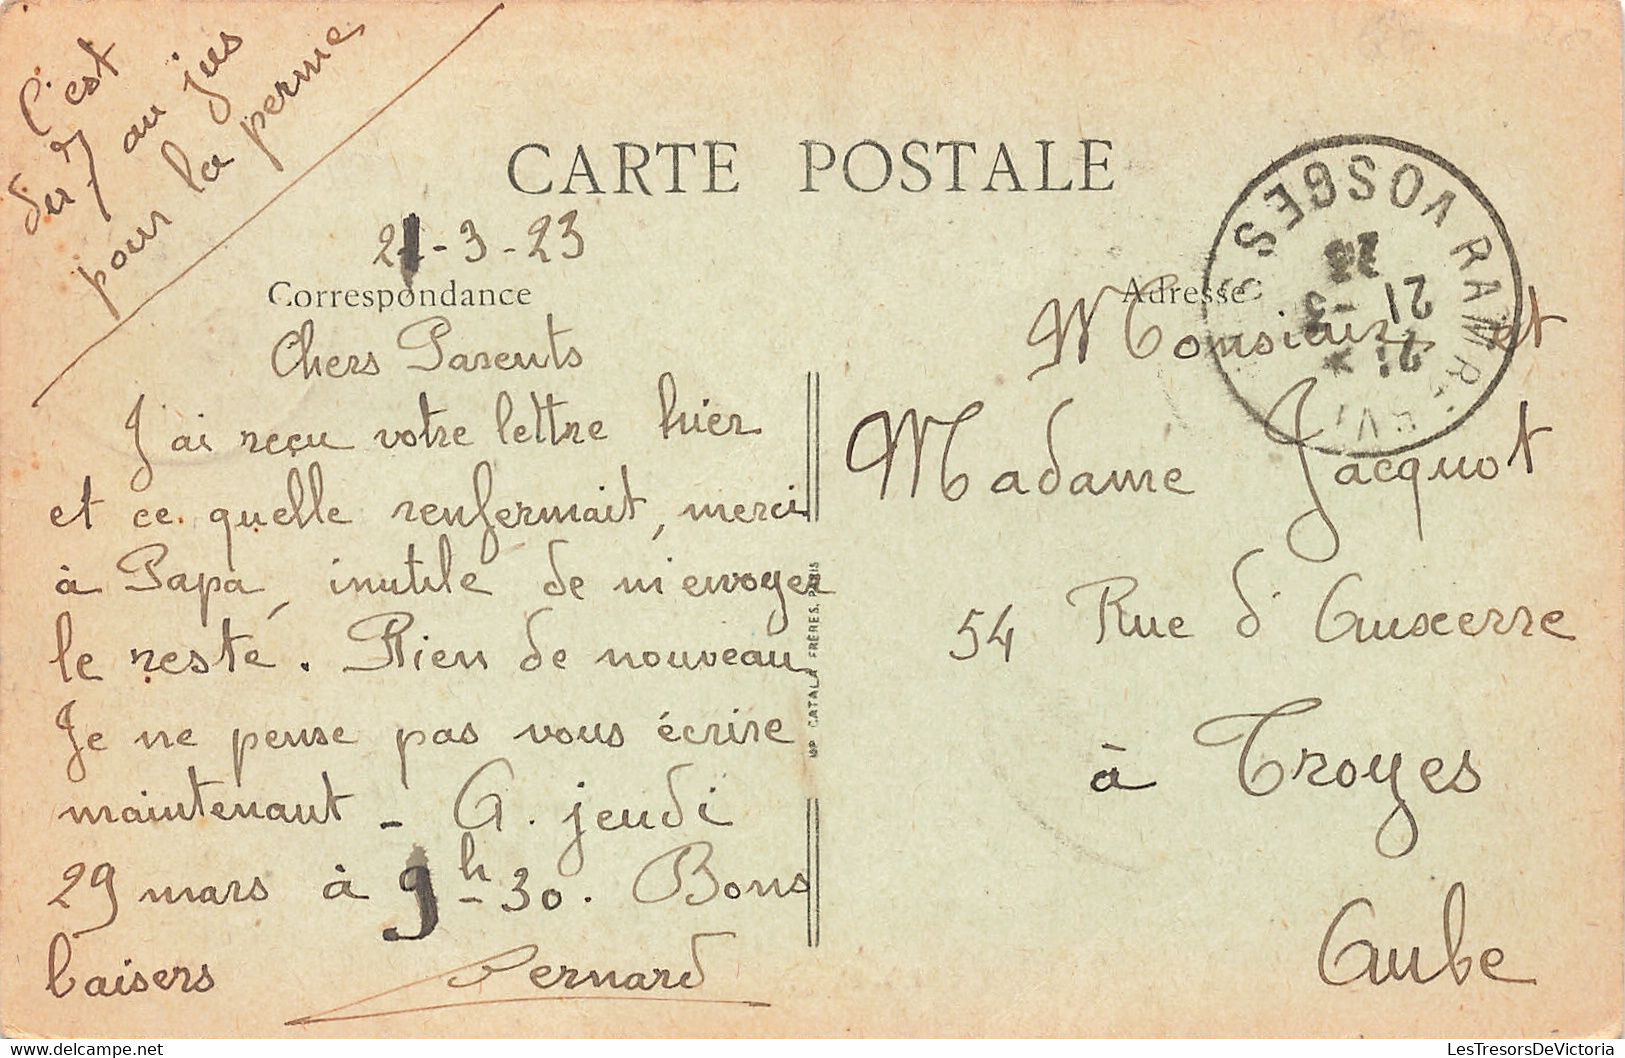 C'est
du 7 au jus
pour la perme
CARTE POSTALE
21-3-23
Correspondance
Adresse
Chers Parents
J'ai reçu votre lettre hier
et ce quelle renfermait, merci
à Papa, inutile de m'envoyer
le reste. Rien de nouveau
Je ne pense pas vous écrire
maintenant - A. jeudi
29 mars à 9h-30. Bons
baisers Bernard
Monsieur et
Madame Jacquot
54 Rue d'Auxerre
à Troyes
Aube
IMP. CATALA FRÈRES, PARIS
VOSGES
21 -3
23
LesTresorsDeVictoria